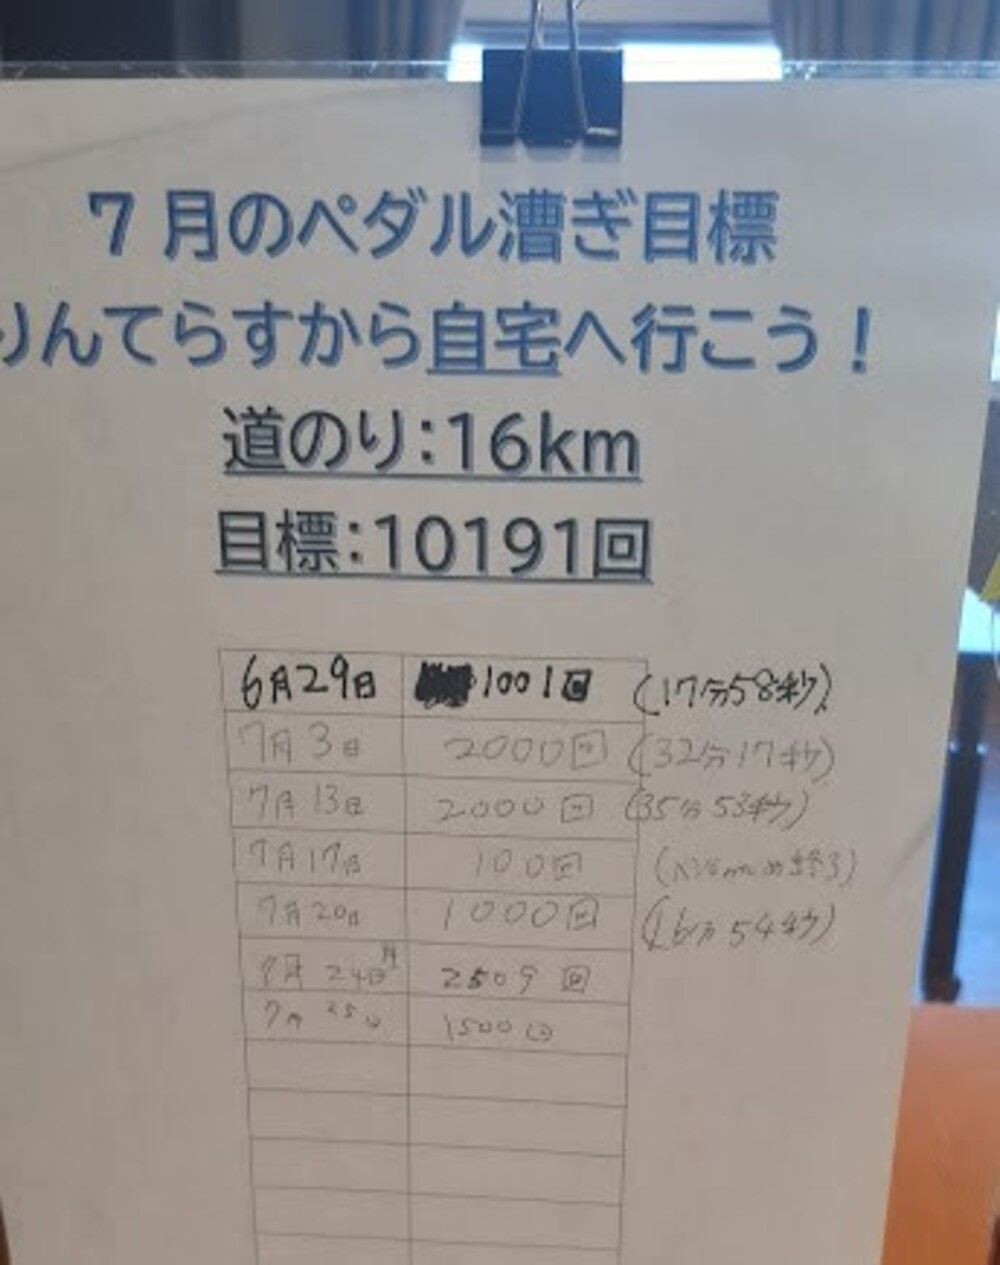 7月のペダル漕ぎ目標
りんてらすから自宅へ行こう！
道のり:16km
目標:10191回
6月29日 1001回 (17分58秒)
7月3日 2000回 (32分17秒)
7月13日 2000回 (35分53秒)
7月17日 100回
7月20日 1000回 (16分54秒)
7月24日 2509回
7月25日 1500回